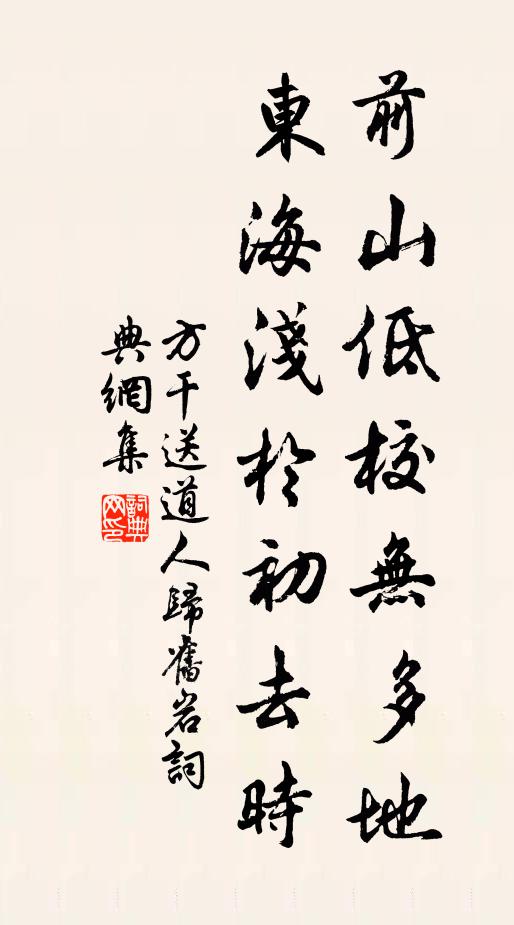 前山低校無多地
東海淺於初去時
方干送道人歸舊岩詞
典網集
詞典
网印